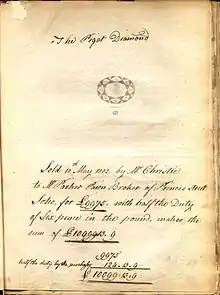 The Pigot Diamond
Sold 10th May 1802 by Mr Christie
to Mr Parker Pawn Broker of Princes Street
Soho, for £9975. with half the Duty
of Six pence in the pound, makes the
sum of £10099.13.9
9975
half the duty by the purchaser 124.13.9
£10099.13.9